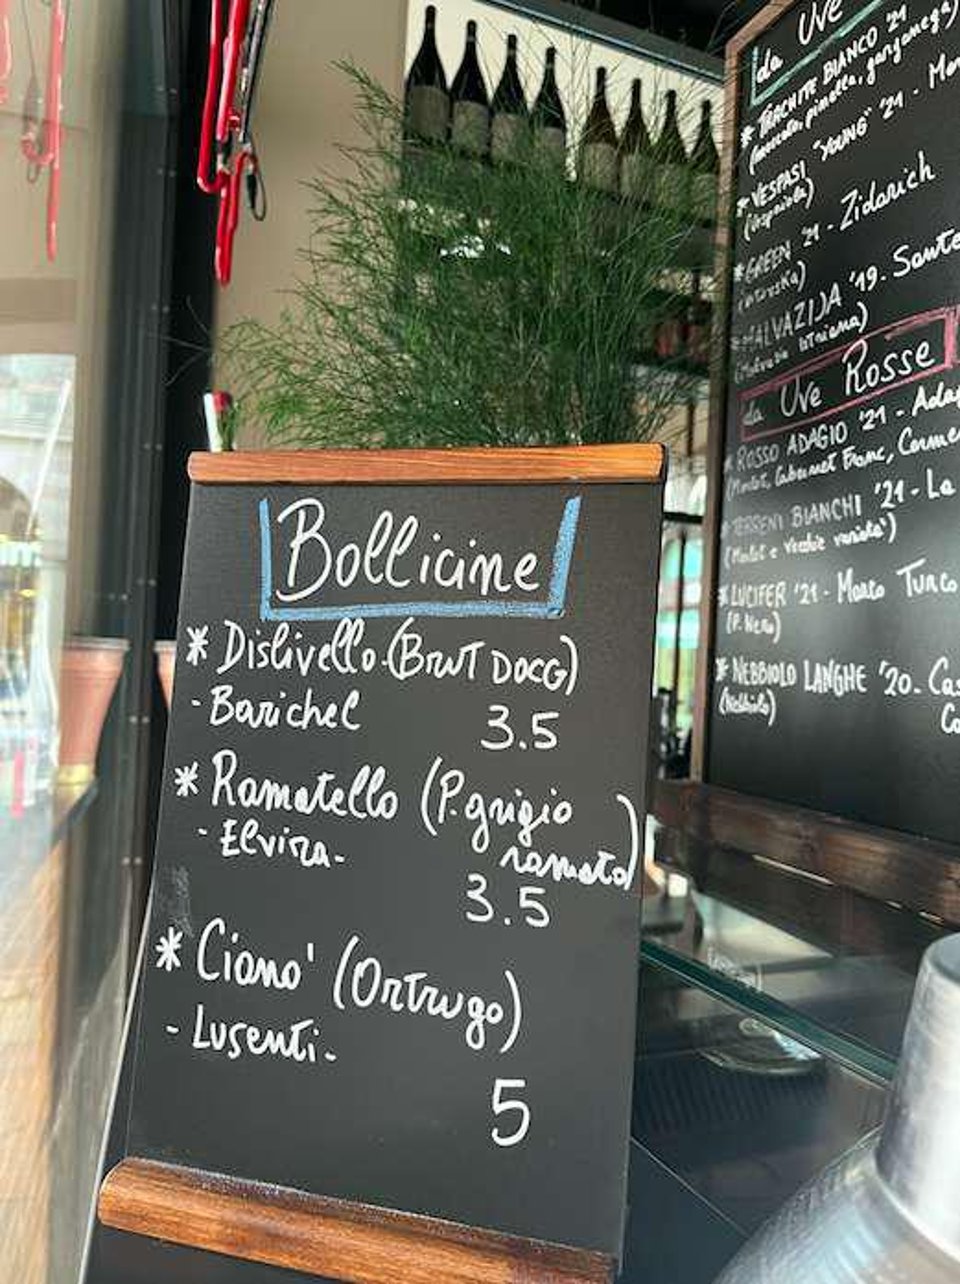 Bollicine
* Dislivello.(Brut DOCG)
- Barichel
3.5
* Ramatello (P.grigio
ramato)
- Elvira-
3.5
* Ciano' (Ortrugo)
- Lusenti-
5
da Uve
* TRACHITE BIANCO '21
(moscato, pinella, garganega)
* VESPASI "YOUNG" '21 -
(Vespaiola)
* GREEN '21 - Zidarich
(Vitovska)
* MALVAZIJA '19 -
(Malvasia Istriana)
da Uve Rosse
* ROSSO ADAGIO '21 -
(Merlot, Cabernet Franc,
TERRENI BIANCHI '21 - La
(Merlot e vecchie varietà)
* LUCIFER '21 - Marco Turco
(P. Nero)
* NEBBIOLO LANGHE '20.
(Nebbiolo)